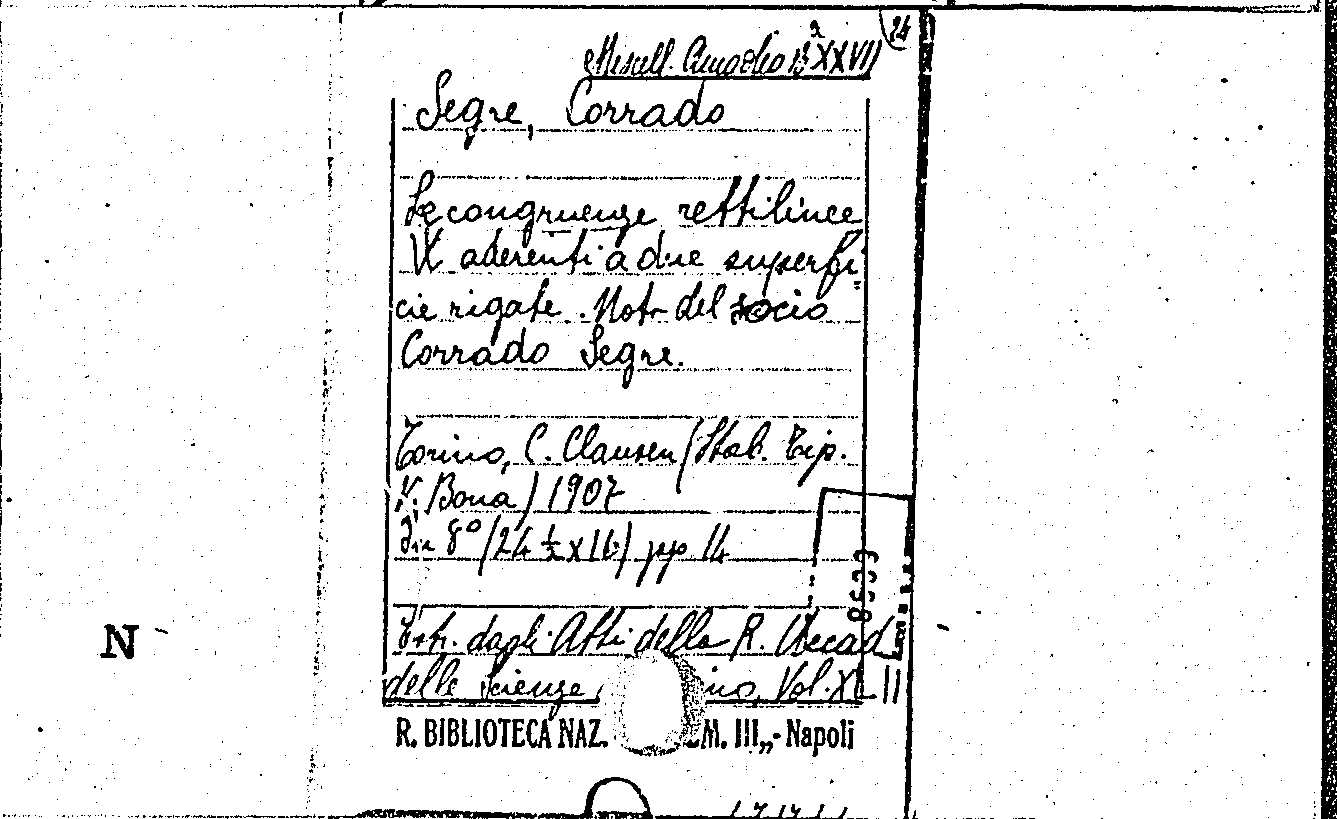 24
Miscell. Amodeo B² XXVII
Segre, Corrado
Le congruenze rettilinee
W aderenti a due superfi
cie rigate. Nota del socio
Corrado Segre.
Torino, C. Clausen (Stab. Tip.
V. Bona) 1907
In 8° (24 ½ x 16) pp 14
8593
Estr. dagli Atti della R. Accad
delle Scienze ino, Vol. XLII
N
R. BIBLIOTECA NAZ. M. III„ - Napoli